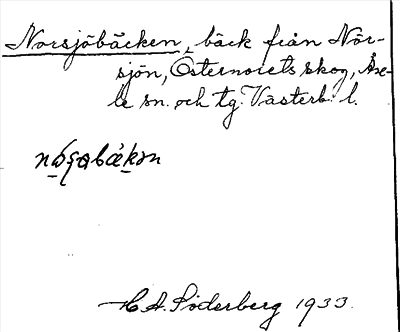 Norsjöbäcken, bäck från Nor-
sjön, Östernorets skog, Åse-
le sn. och tg. Västerb. l.
H. A. Söderberg 1933.